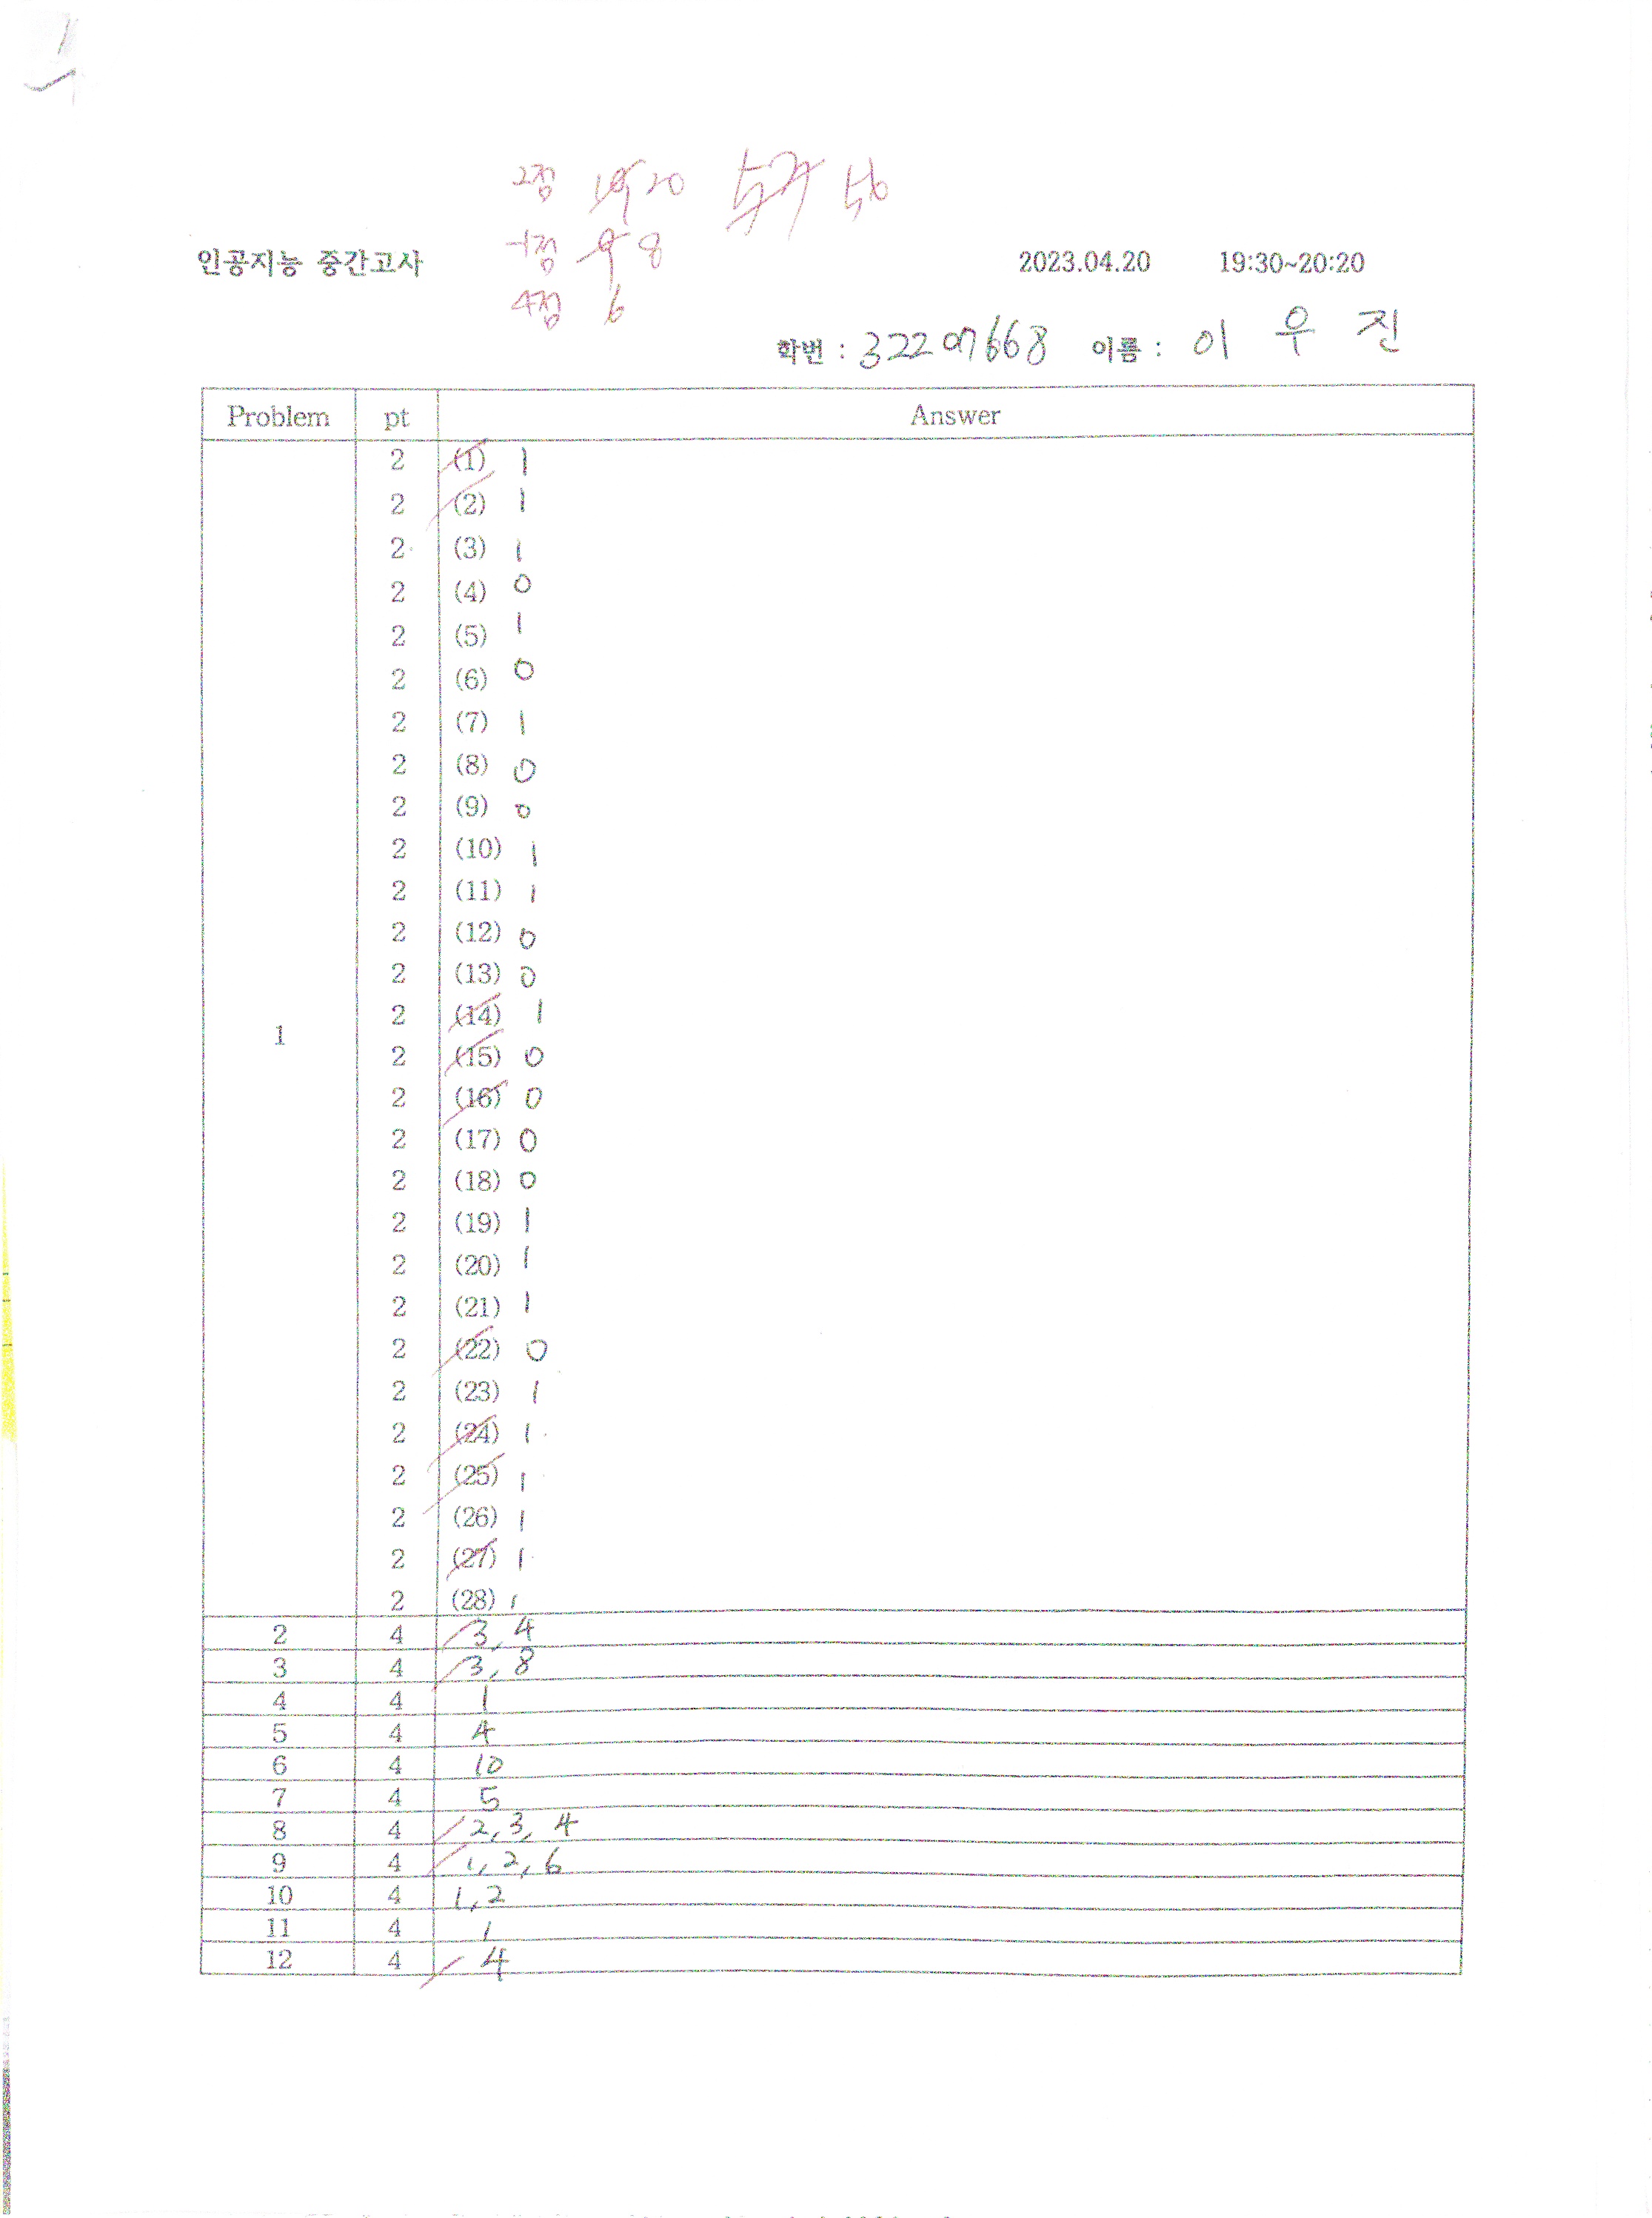 2점 19 20 56
인공지능 중간고사 -1점 9 8 2023.04.20 19:30~20:20
4점 6
학번 : 32207668 이름 : 이 우 진
Problem pt Answer
2 (1) 1
2 (2) 1
2 (3) 1
2 (4) 0
2 (5) 1
2 (6) 0
2 (7) 1
2 (8) 0
2 (9) 0
2 (10) 1
2 (11) 1
2 (12) 0
2 (13) 0
2 (14) 1
1
2 (15) 0
2 (16) 0
2 (17) 0
2 (18) 0
2 (19) 1
2 (20) 1
2 (21) 1
2 (22) 0
2 (23) 1
2 (24) 1
2 (25) 1
2 (26) 1
2 (27) 1
2 (28) 1
2 4 3, 4
3 4 3, 8
4 4 1
5 4 4
6 4 10
7 4 5
8 4 2, 3, 4
9 4 1, 2, 6
10 4 1, 2
11 4 1
12 4 4